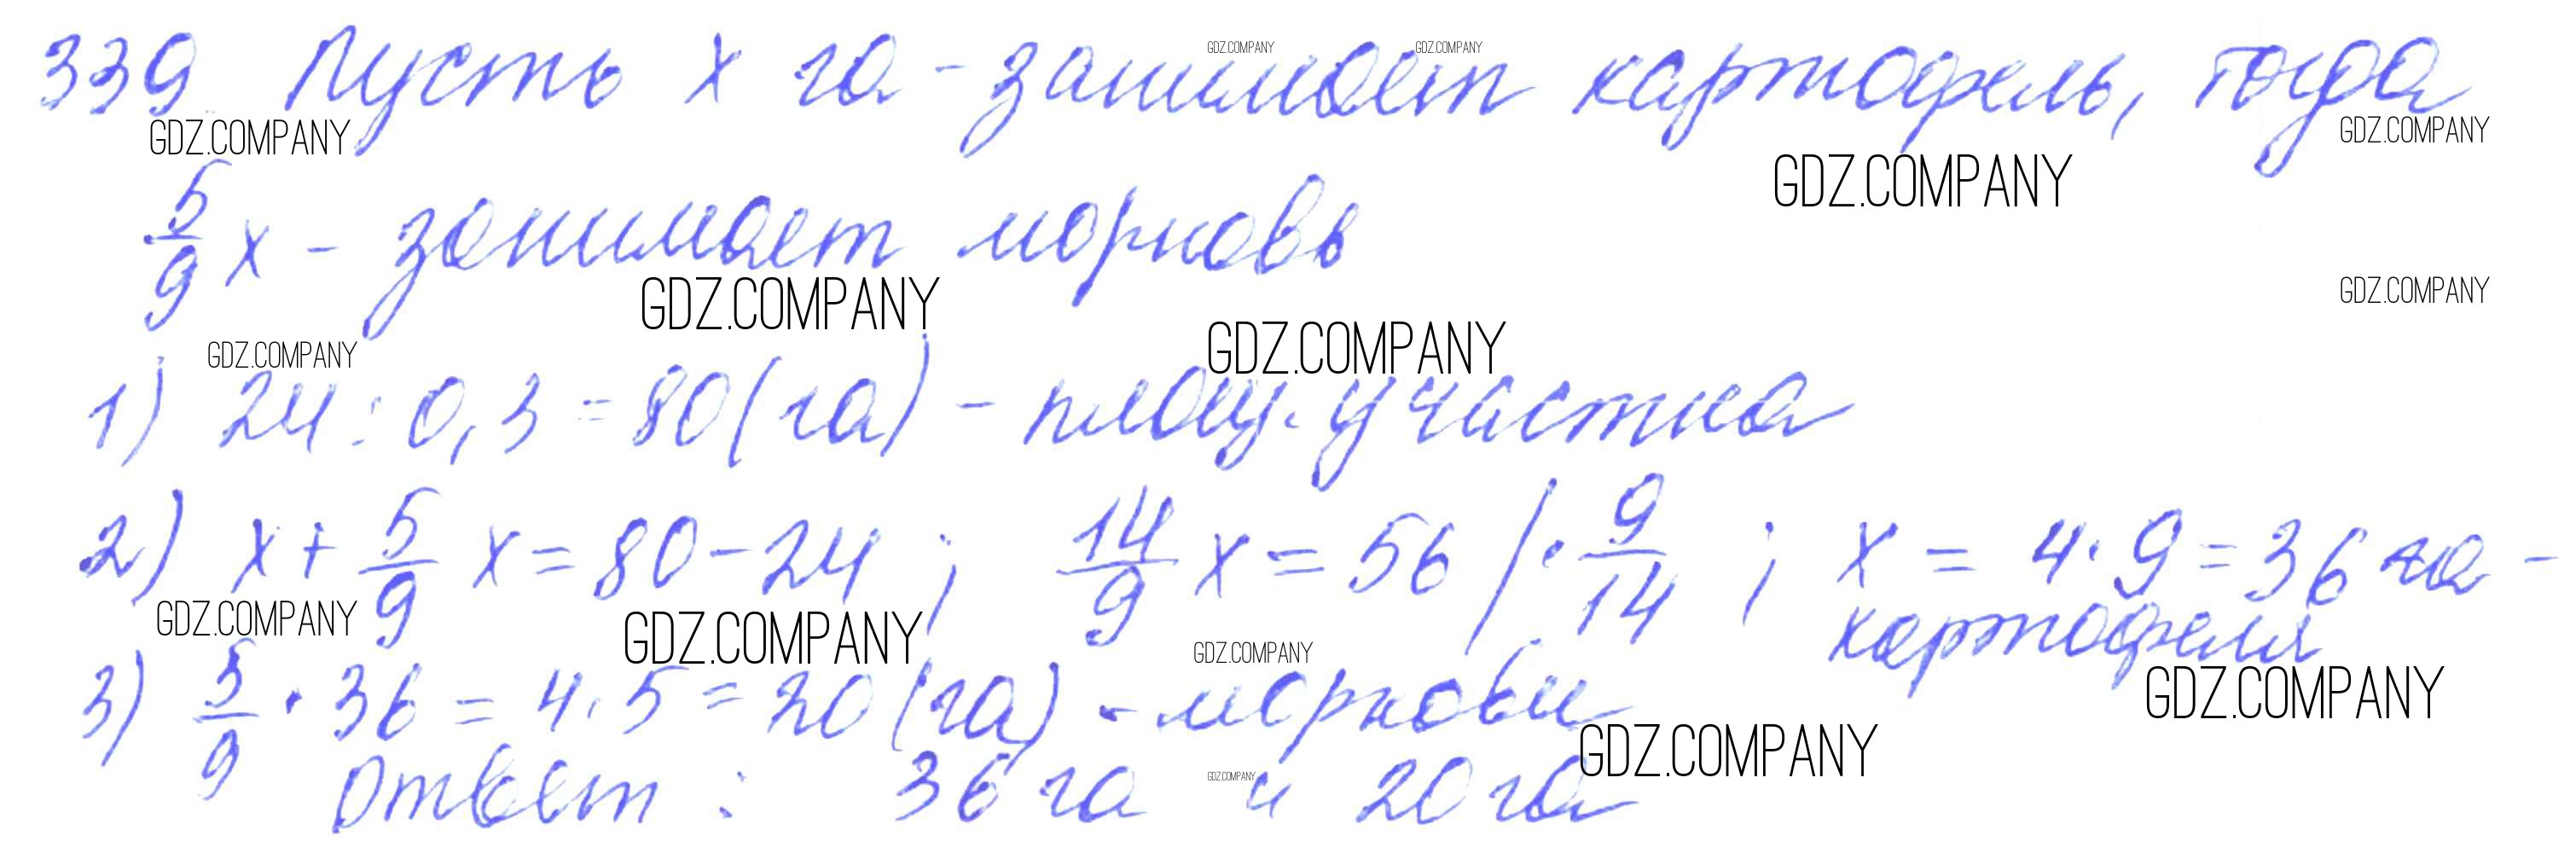 339 Пусть х га - занимает картофель, тогда
GDZ.COMPANY GDZ.COMPANY
GDZ.COMPANY GDZ.COMPANY
GDZ.COMPANY
5/9 х - занимает морковь
GDZ.COMPANY GDZ.COMPANY
GDZ.COMPANY GDZ.COMPANY
1) 24 : 0,3 = 80 (га) - площ. участка
2) х + 5/9 х = 80 - 24 ; 14/9 х = 56 | · 9/14 ; х = 4 · 9 = 36 га -
картофеля
GDZ.COMPANY GDZ.COMPANY GDZ.COMPANY
3) 5/9 · 36 = 4 · 5 = 20 (га) - моркови
GDZ.COMPANY
GDZ.COMPANY
Ответ : 36 га и 20 га
GDZ.COMPANY